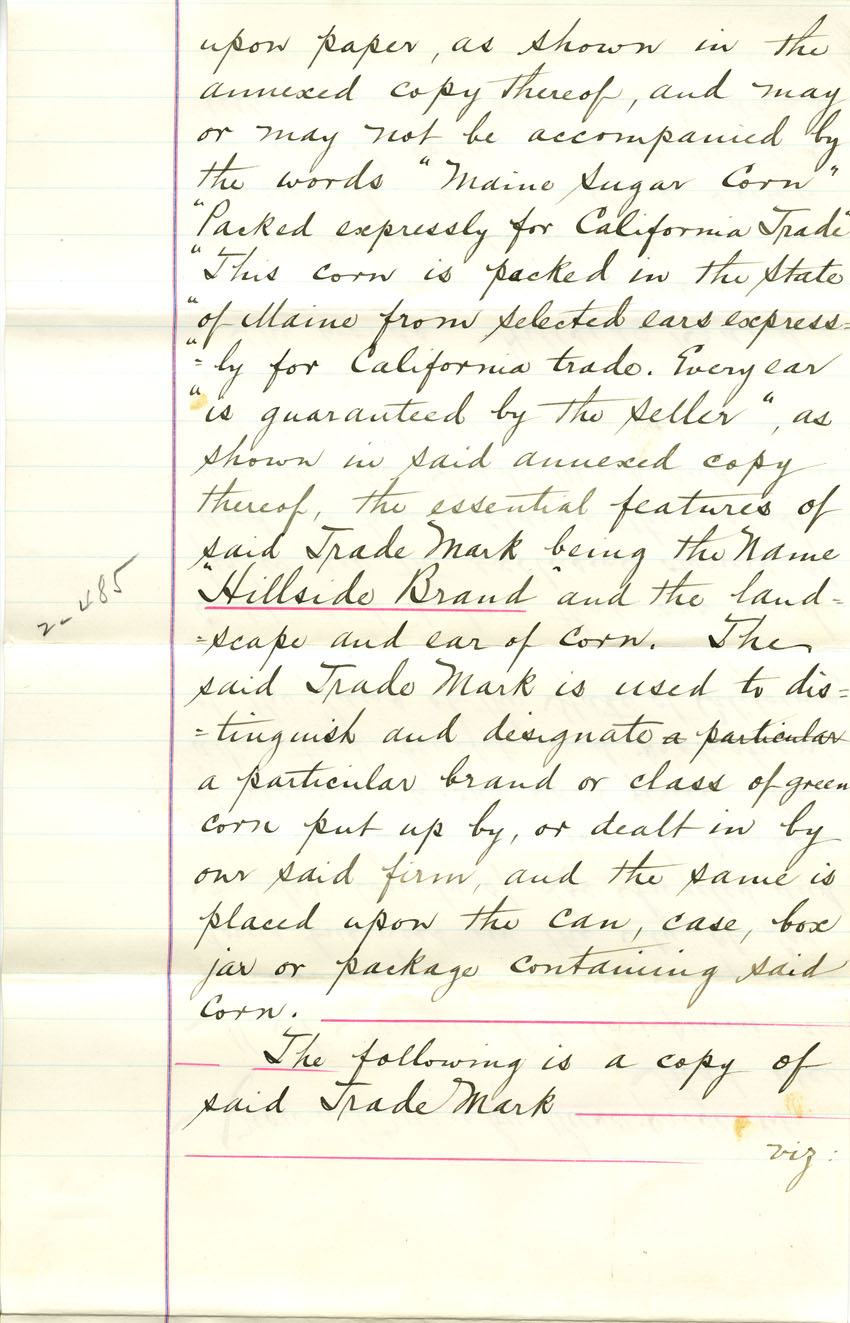 upon paper, as shown in the
annexed copy thereof, and may
or may not be accompanied by
the words "Maine Sugar Corn"
"Packed expressly for California Trade"
"This corn is packed in the State
"of Maine from selected ears express=
"=ly for California trade. Every ear
"is guaranteed by the seller", as
shown in said annexed copy
thereof, the essential features of
said Trade Mark being the Name
"Hillside Brand" and the land=
2-485
=scape and ear of corn. The
said Trade Mark is used to dis=
=tinguish and designate a particular
a particular brand or class of green
corn put up by, or dealt in by
our said firm, and the same is
placed upon the can, case, box
jar or package containing said
Corn.
The following is a copy of
said Trade Mark
viz: